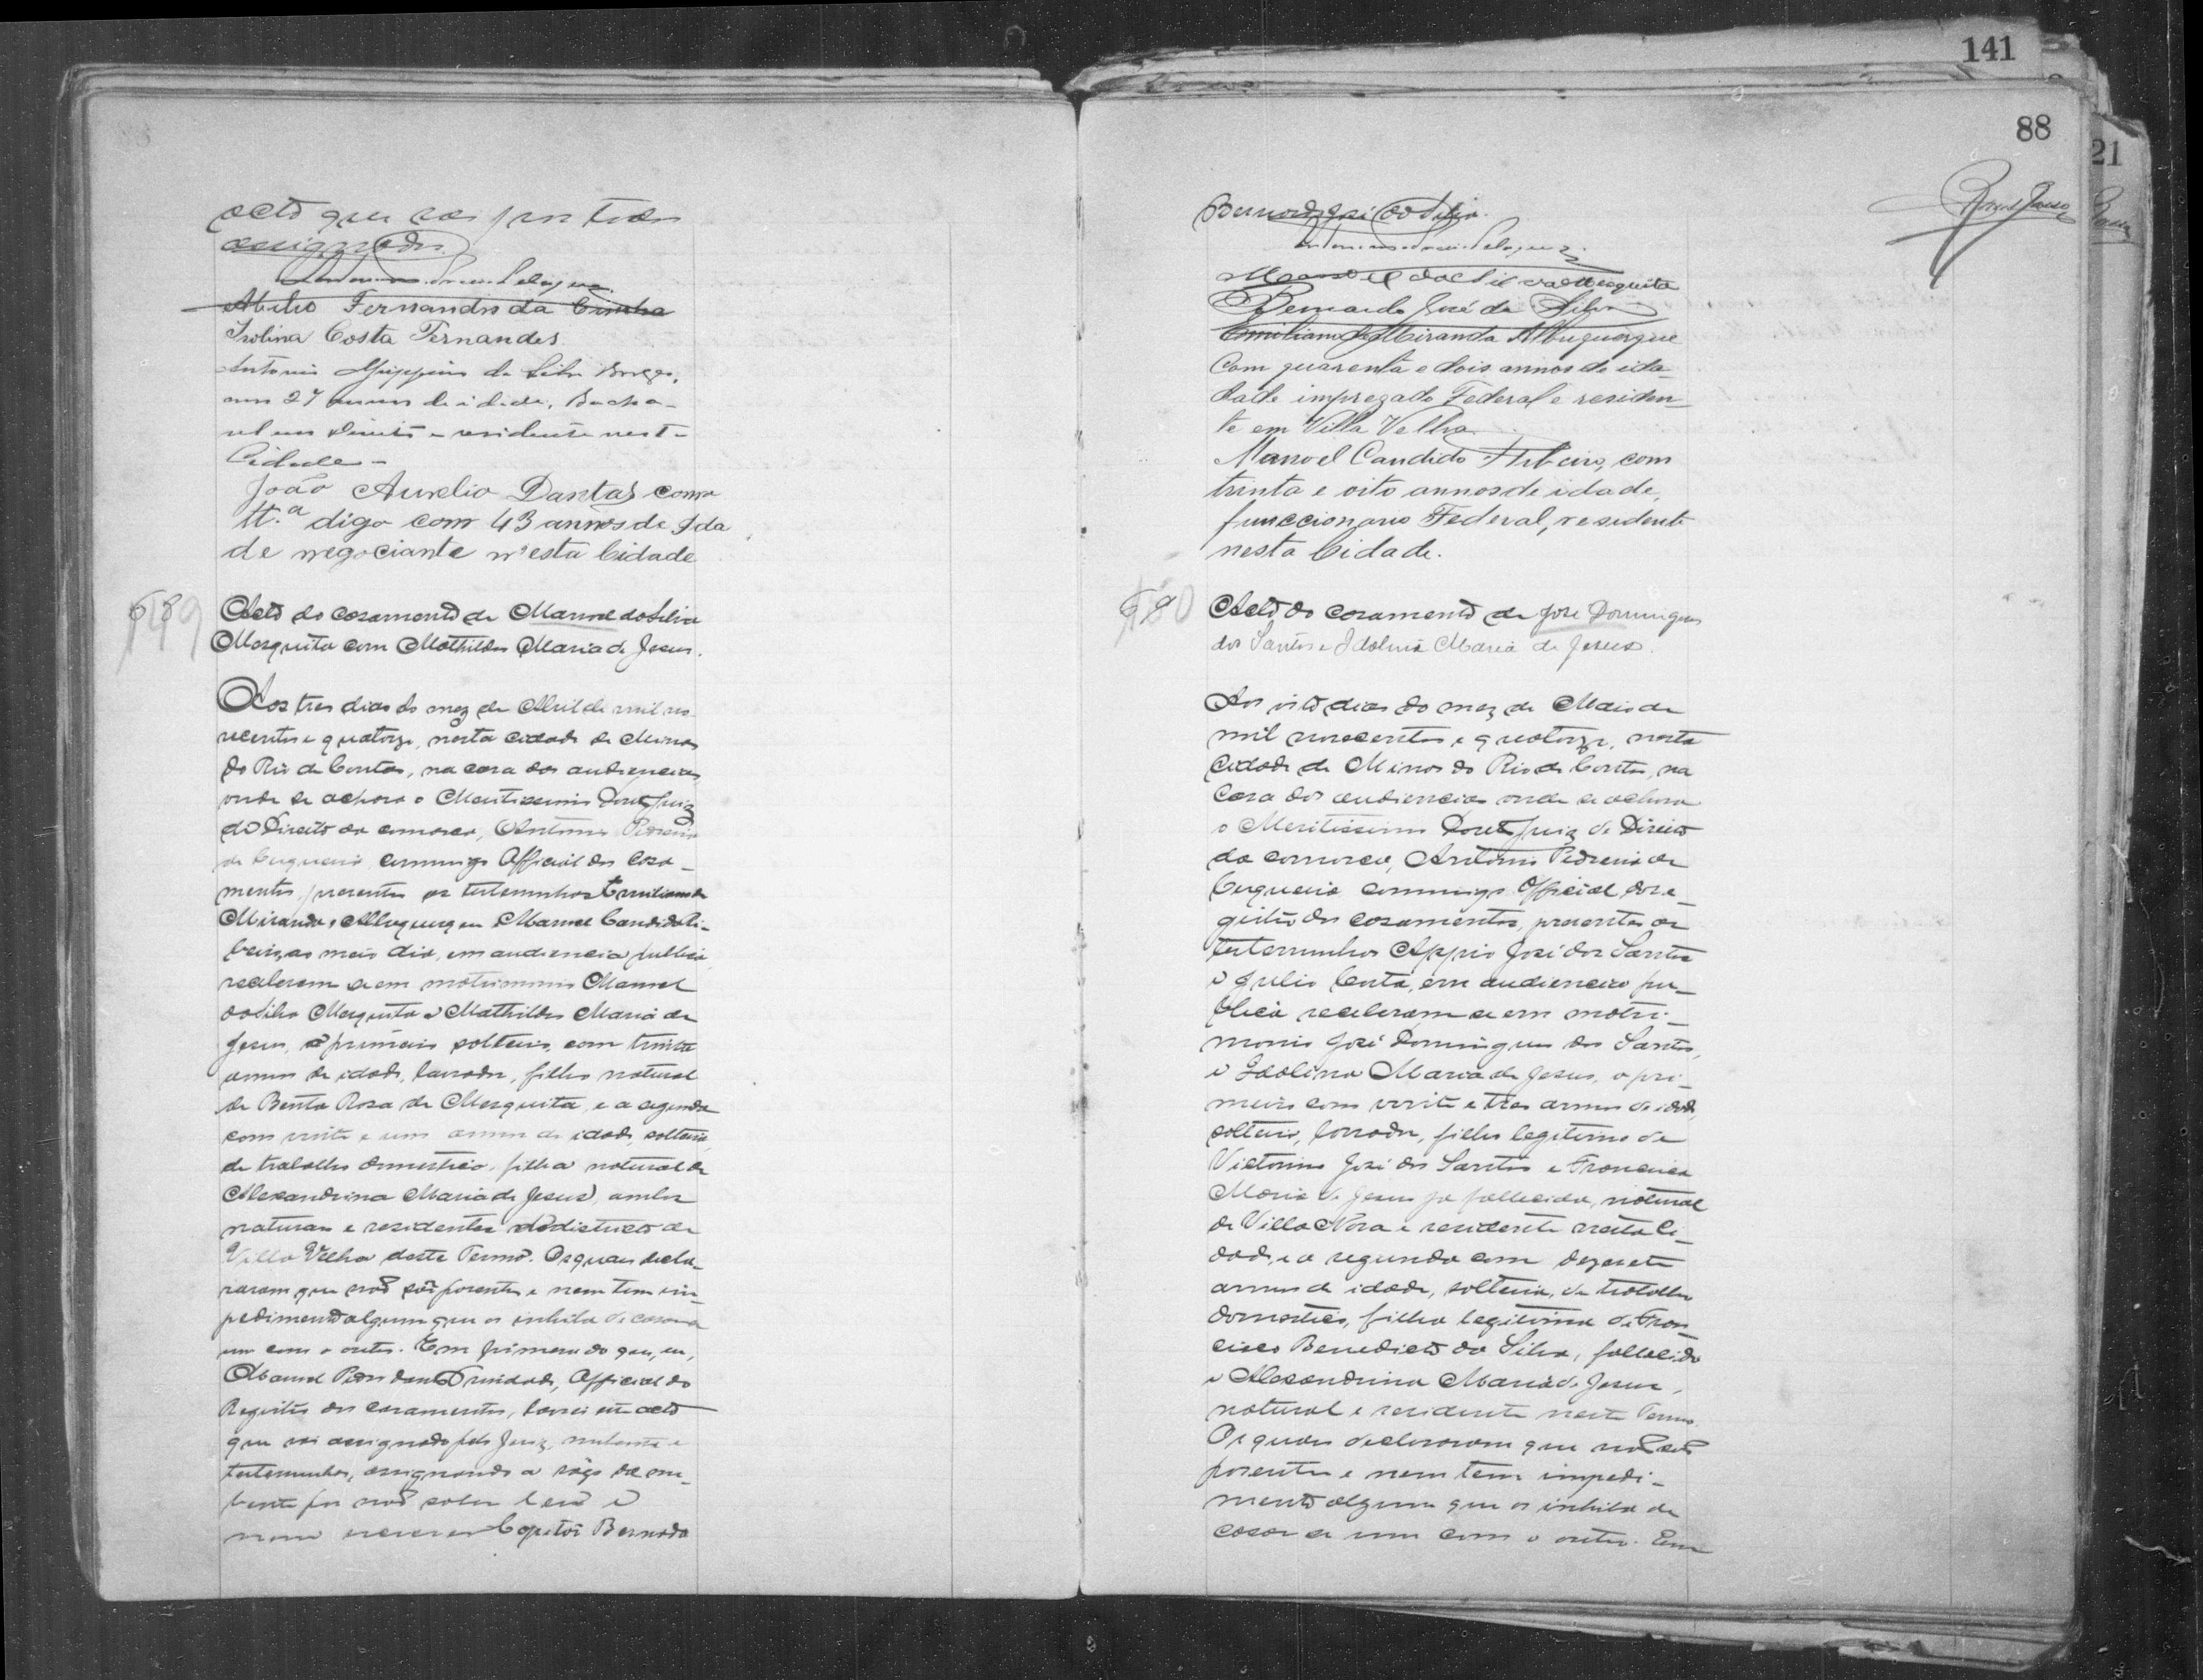 acto que vae por todos
assignados.
Abilio Fernandes da Cunha
Isolina Costa Fernandes
Antonio
27 annos de idade, Bacha-
rel em Direito e residente nest-
Cidade-
João Aurelio Dantas com
tt.a digo com 43 annos de Ida
de negociante n'esta Cidade
689
Acto do casamento de Manoel da Silva
Mesquita com Mathildes Maria de Jesus.
Aos tres dias do mez de Abril de mil no-
vecentos e quatorze, nesta cidade de Minas
do Rio de Contas, na casa das audiencias
onde se achava o Meritissimo Doutor Juiz
de Direito da comarca, Antonio Pedreira
de Cerqueira commigo Official dos Casa-
mentos, presentes as testemunhas Emiliano de
Miranda Albuquerque e Manoel Candido Ri-
beiro, ao meio dia, em audiencia publica,
receberam-se em matrimonio Manoel
da Silva Mesquita e Mathildes Maria de
Jesus, o primeiro solteiro, com trinta
annos de idade, lavrador, filho natural
de Benta Rosa de Mesquita, e a segunda
com vinte e um annos de idade, solteira,
de trabalho domestico, filha natural de
Alexandrina Maria de Jesus, ambos
naturaes e residentes no districto de
Villa Velha deste Termo. Os quaes decla-
raram que não são parentes e nem tem im-
pedimento algum que os inhiba de casar-se
um com o outro. Em firmeza do que, eu,
Manoel Pedro da Trindade, Official do
Registro dos casamentos, lavrei este acto
que vai assignado pelo Juiz, nubente e
testemunhas, assignando a rogo da nu-
bente por não saber ler e
nem escrever Capitão Bernardo
141
88
21
Bernardo José da Silva.
Manoel da Silva Mesquita
Bernardo José da Silva
Emiliano de Miranda Albuquerque
Com quarenta e dois annos de ida-
dade impregado Federal e residen-
te em Villa Velha
Manoel Candido Ribeiro, com
trinta e oito annos de idade,
funccionario Federal, residente
nesta Cidade.
690
Acto do casamento de José Domingues
dos Santos e Idolina Maria de Jesus.
Aos oito dias do mez de Maio de
mil novecentos e quatorze, nesta
Cidade de Minas do Rio de Contas, na
Casa das audiencias onde se achava
o Meritissimo Doutor Juiz de Direito
da comarca, Antonio Pedreira de
Cerqueira commigo Official do re-
gistro dos casamentos, presentes as
testemunhas Appio José dos Santos
e Julio Costa, em audiencia pu-
blica receberam-se em matri-
monio José Domingues dos Santos,
e Idolina Maria de Jesus, o pri-
meiro com vinte e tres annos de idade,
solteiro, lavrador, filho legitimo de
Victorino José dos Santos e Francisca
Maria de Jesus já fallecida, natural
de Villa Nova e residente nesta Ci-
dade, e a segunda com dezesete
annos de idade, solteira, de trabalho
domestico, filha legitima de Fran-
cisco Benedicto da Silva, fallecido
e Alexandrina Maria de Jesus,
natural e residente neste Termo.
Os quaes declararam que não são
parentes e nem tem impedi-
mento algum que os inhiba de
casar-se um com o outro. Em